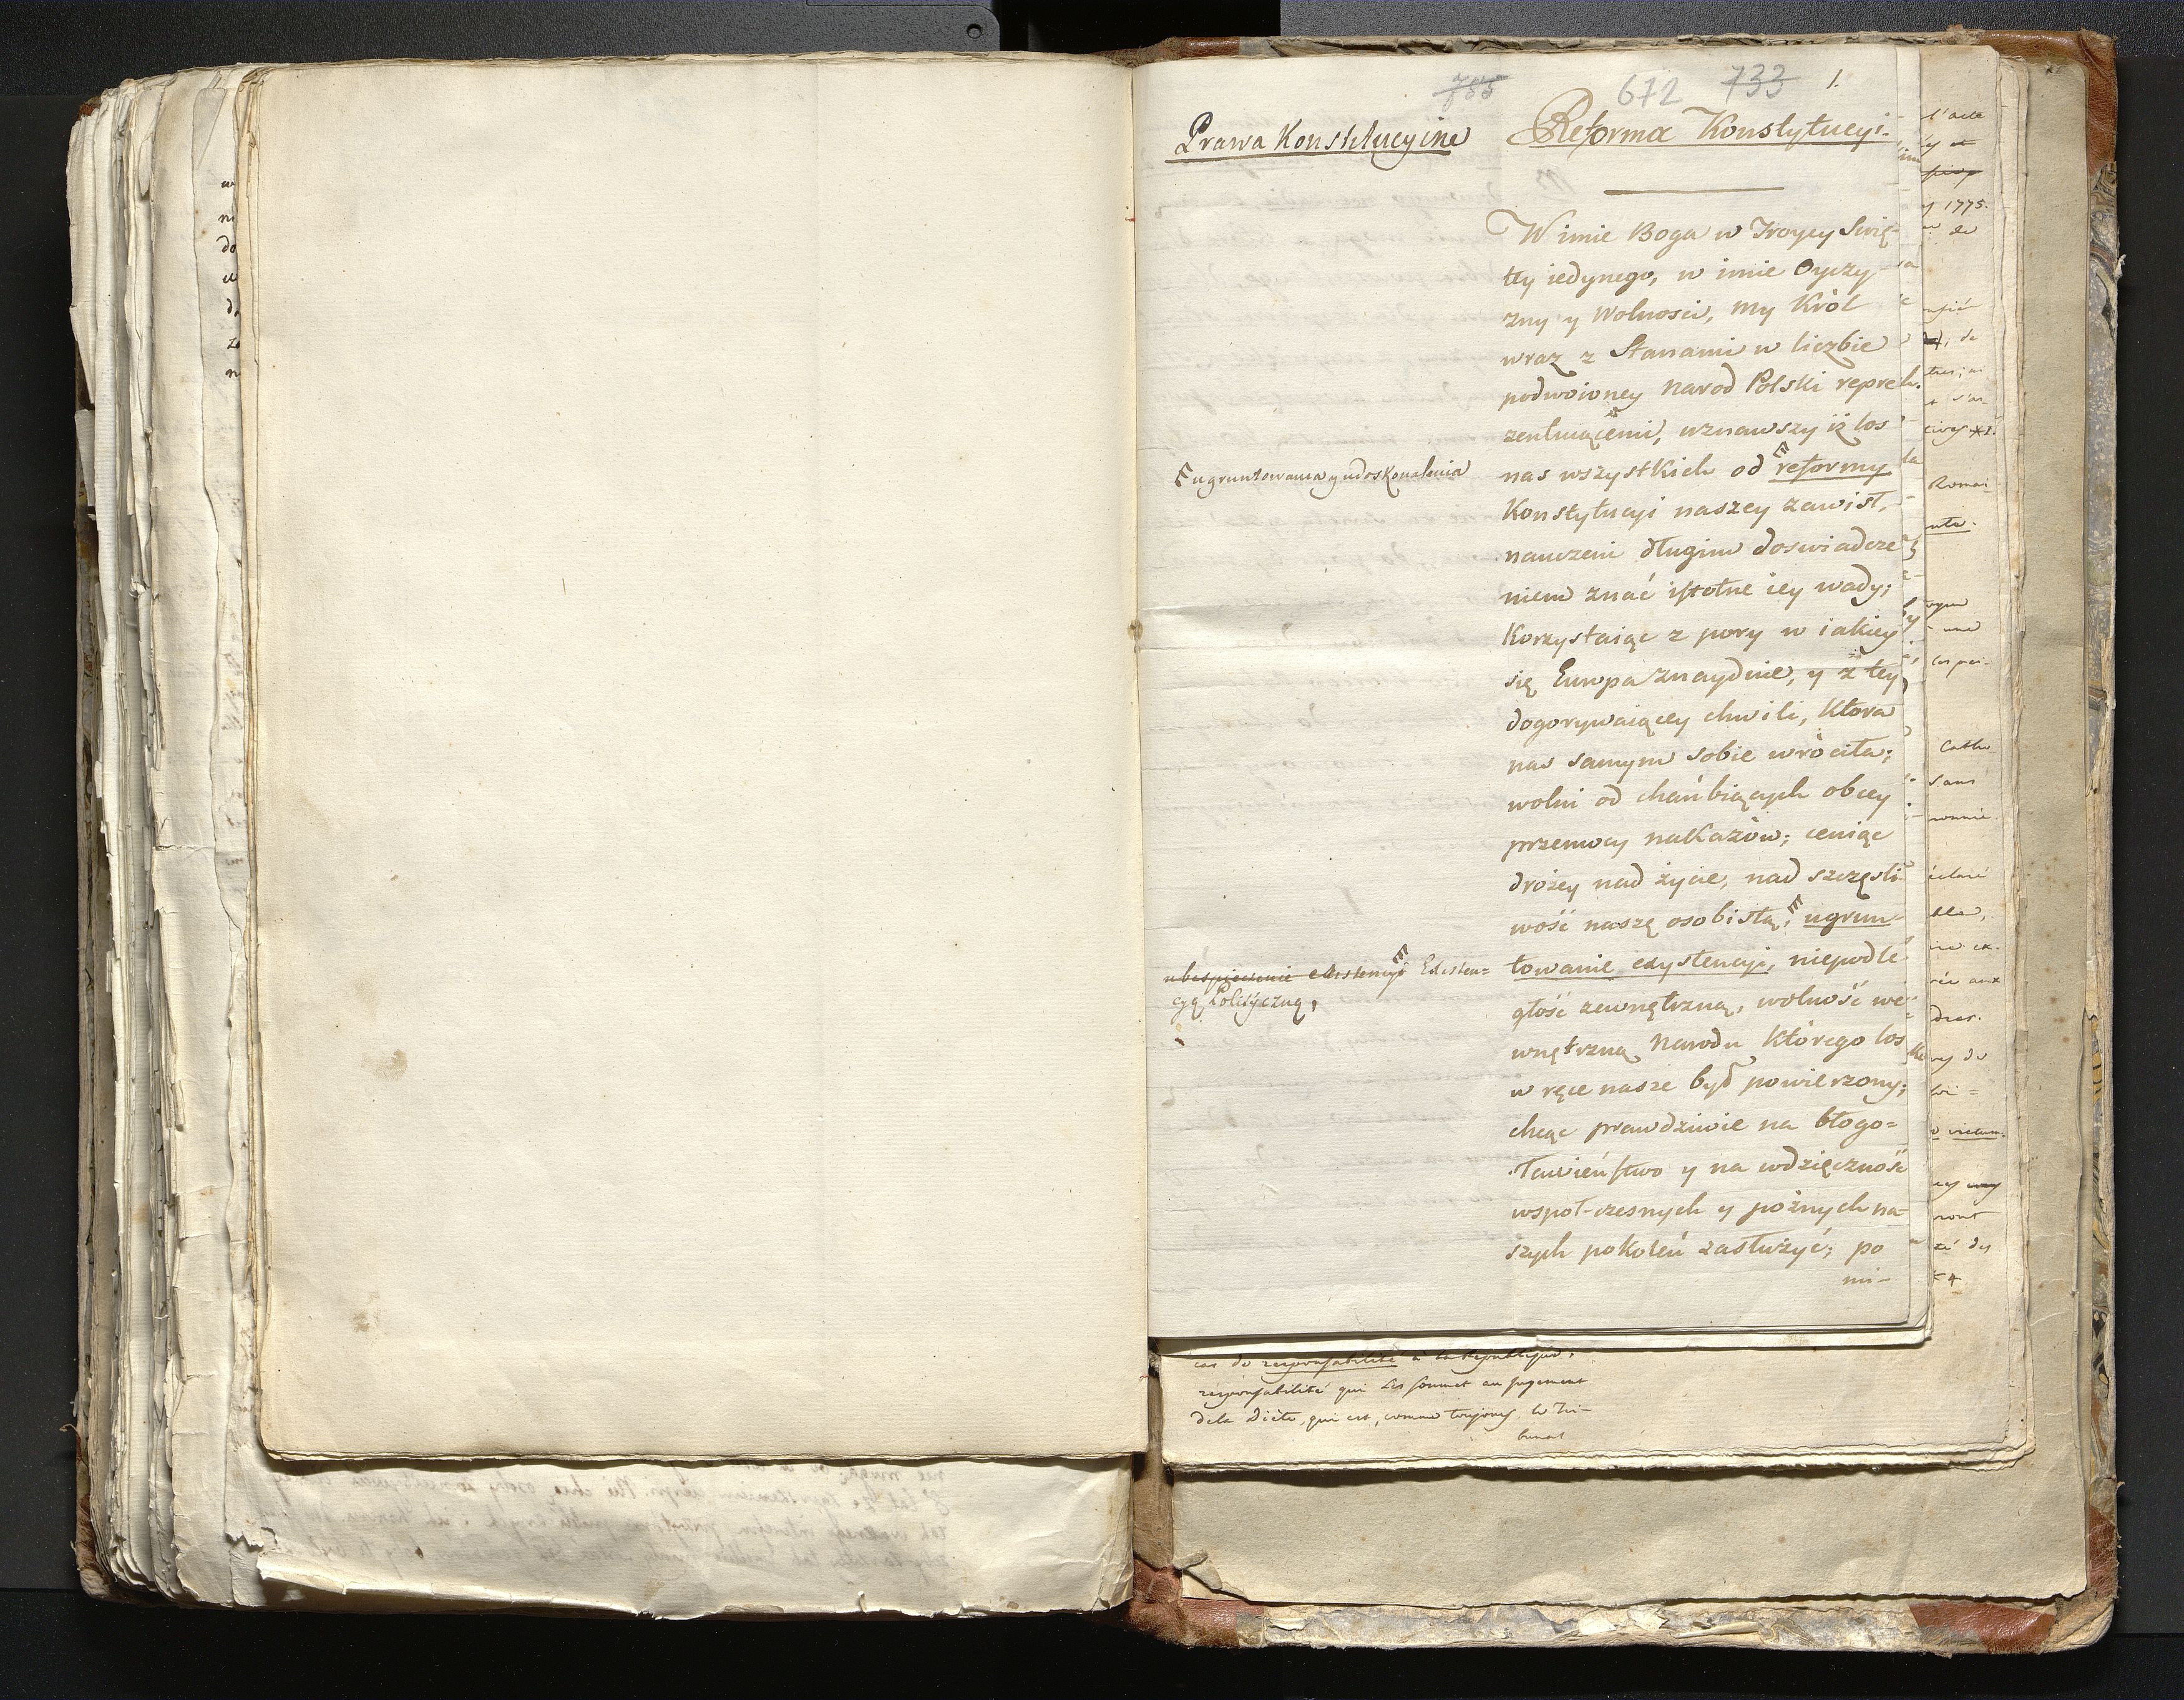 755 672 733 1.
Prawa Konstytucyine
Reforma Konstytucyi.
W imie Boga w Troycy Swię-
tey iedynego, w imie Oyczy-
zny y Wolnosci, My Król
wraz z Stanami w liczbie
podwoioney Narod Polski repre-
zentuiącemi, uznawszy iż los
nas wszystkich od reformy
Konstytucyi naszey zawisł,
nauczeni długim doswiadcze
niem znać istotne iey wady;
Korzystaiąc z pory w iakiey
się Europa znayduie, y z tey
dogorywaiącey chwili, Która
nas samym sobie wróciła;
wolni od chańbiących obcey
przemocy nakazów; ceniąc
drożey nad życie, nad szczęsli-
wość naszę osobistą, ugrun-
towanie exystencyi, niepodle
głość zewnętrzną, wolność we-
wnętrzną Narodu którego los
w ręce nasze był powierzony;
chcąc prawdziwie na błogo=
sławieństwo y na wdzięczność
wspoł-czesnych y poźnych na-
szych pokoleń zasłużyć; po
mi-
ugruntowania y udoskonalenia
ubespieczenie existencyi Existen=
cyą Polityczną,
cas de responsabilité à la Republique,
responsabilité qui les soumet au jugement
de la Diéte, qui est, comme toujours le Tri-
bunal